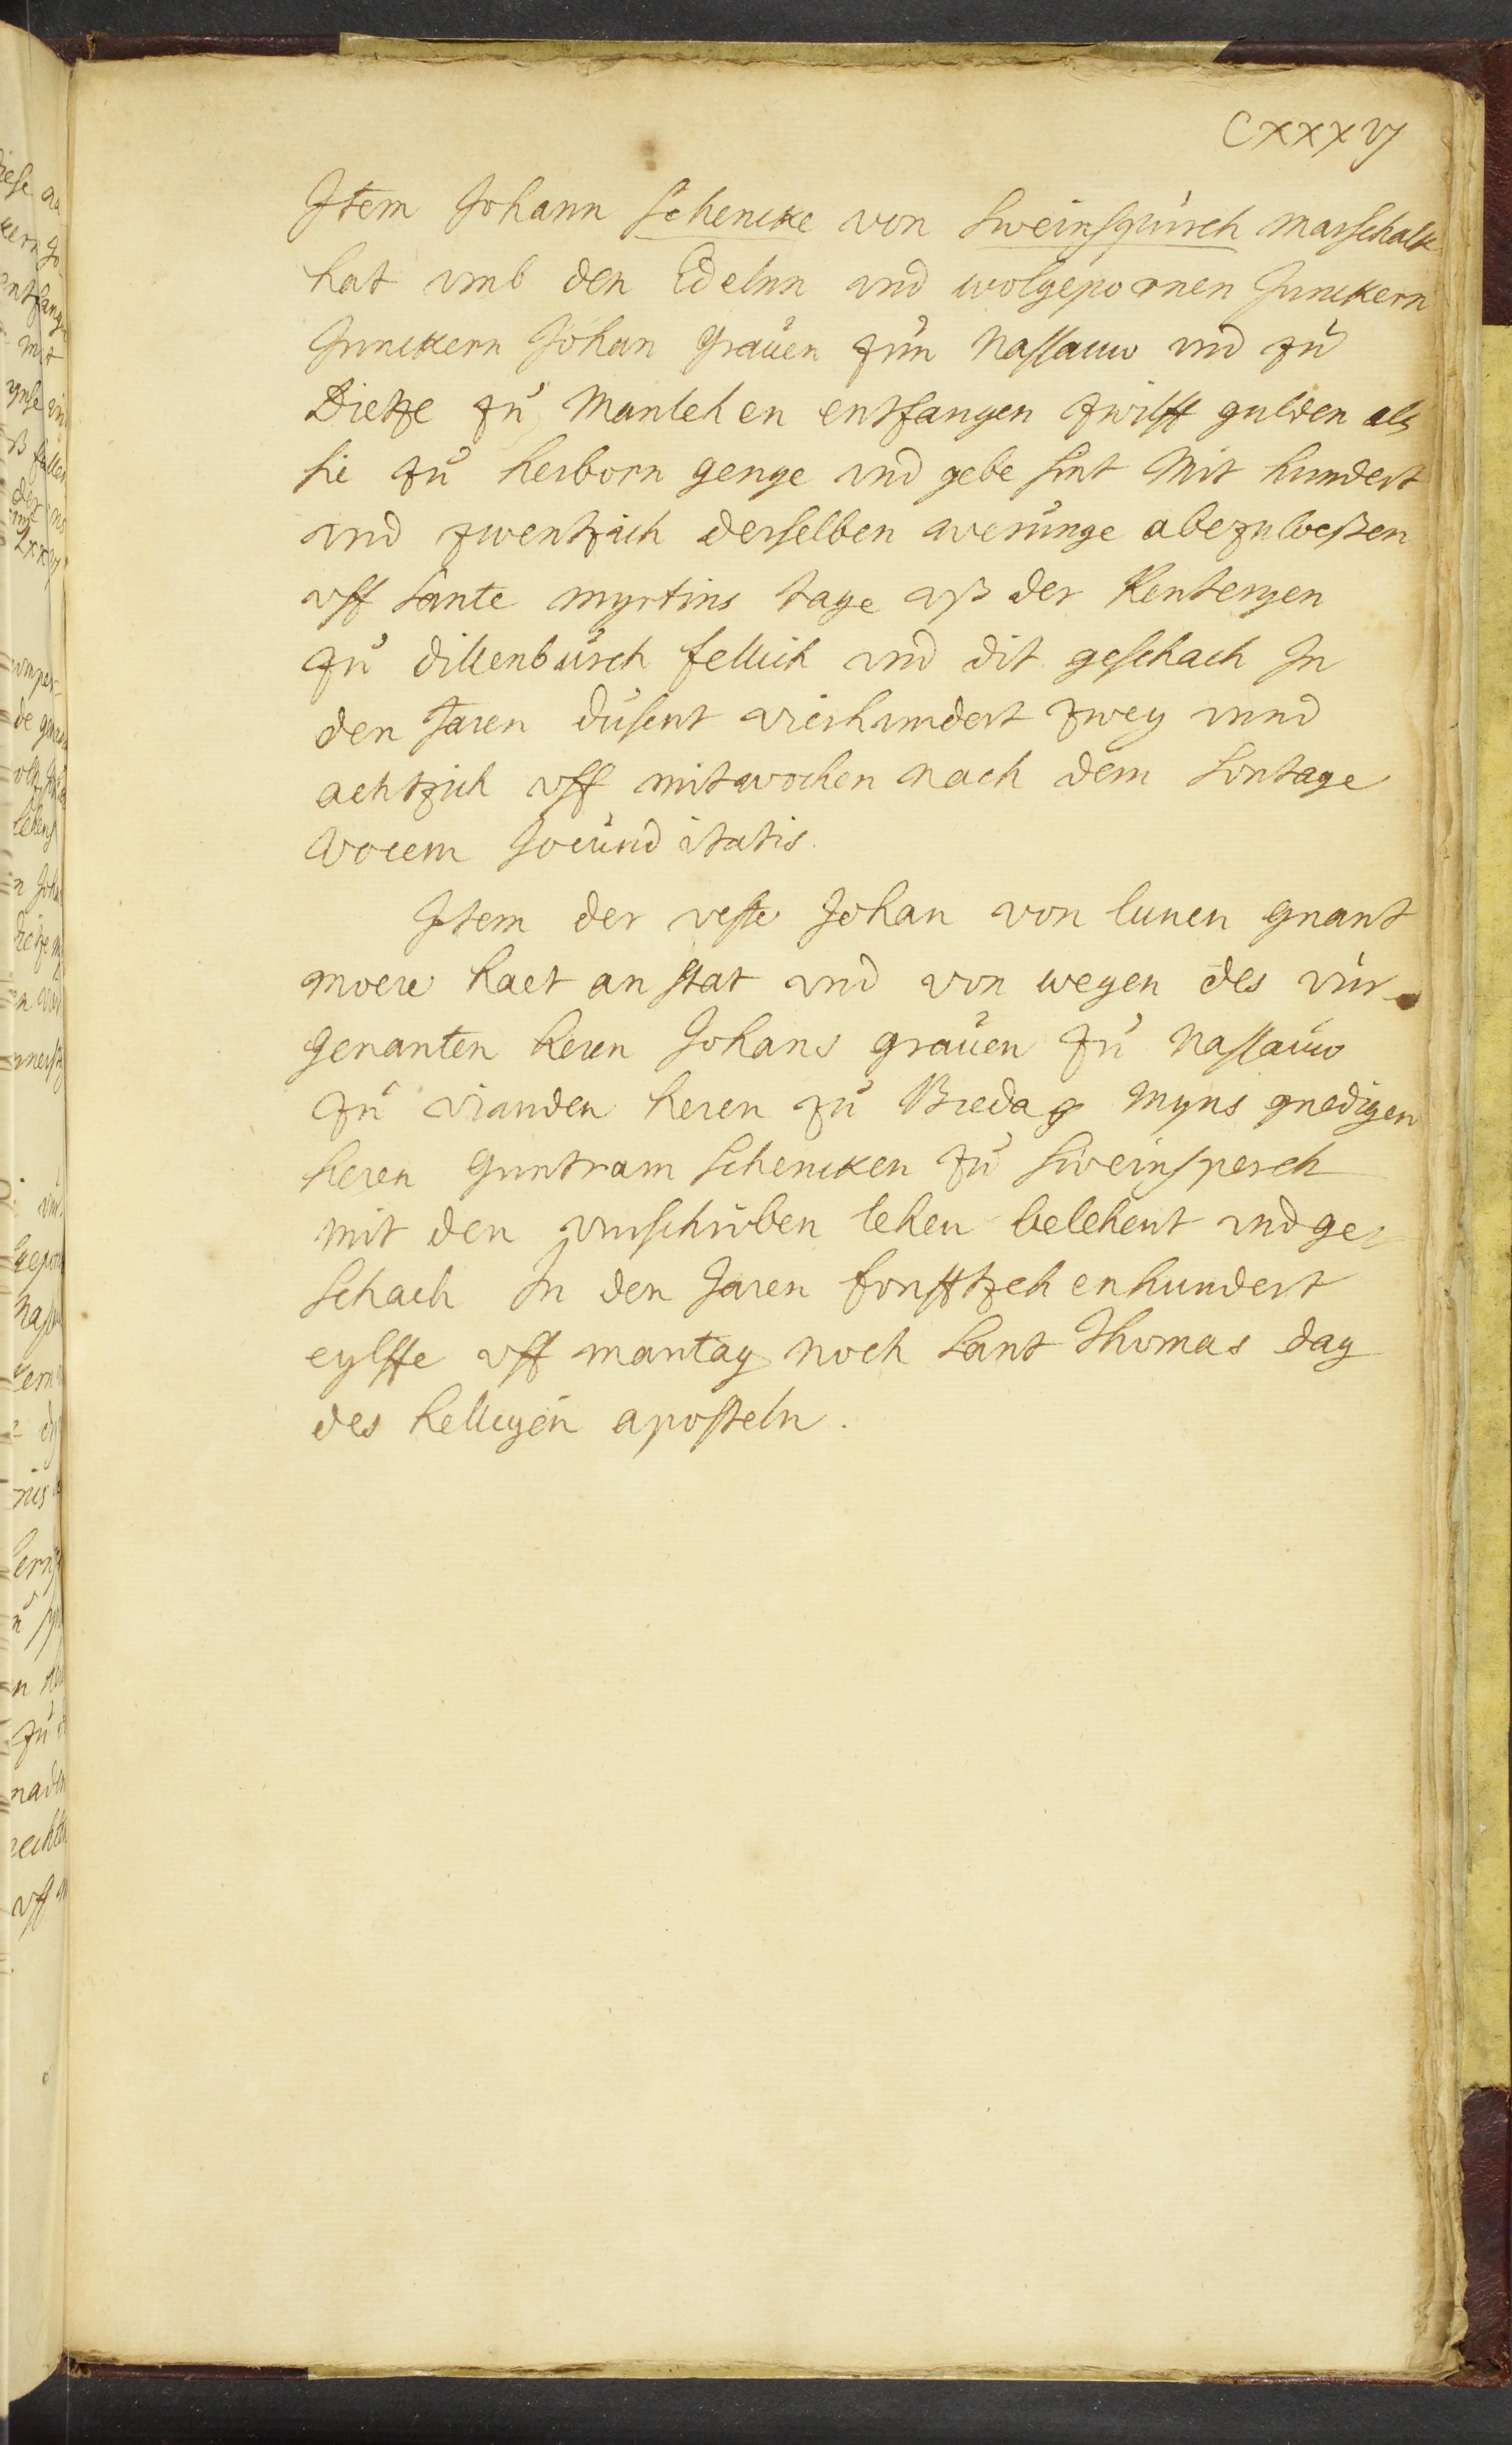 CXXXVJ
Jtem Johann Schencke von Sweinspursch Marschalk
hat vmb den Edelnn vnd wolgepornen Junckern
Junckern Johan Grauen zun Nassauw vnd zu
Dietze zu Manlehen entfangen zwilff gulden als
sie zu herborn genge vnd gebe sint Mit hundert
vnd zwentzich derselben werunge abezuloeßen
vff Sante myrtins tage vß der Renteryen
zu dillenbursch fellich vnd dit geschach Jn
den Jaren dusent vierhundert zwey vnnd
achtzich vff mitwochen nach dem Sontage
vocem Jocunditatis.
Jtem der veste Johan von lunen gnant
moere haet an stat vnd von wegen des vur-
genanten heren Johans grauen zu Nassauw
zu vianden heren zu Breda Myns gnedigen
heren Guntram Schencken zu Sweinsperch
mit den vurschriben lehen belehent vnd ge-
schach Jn den Jaren fonfftzehenhundert
eylffe vff mantag noch Sant Thomas dag
des helligen aposteln.